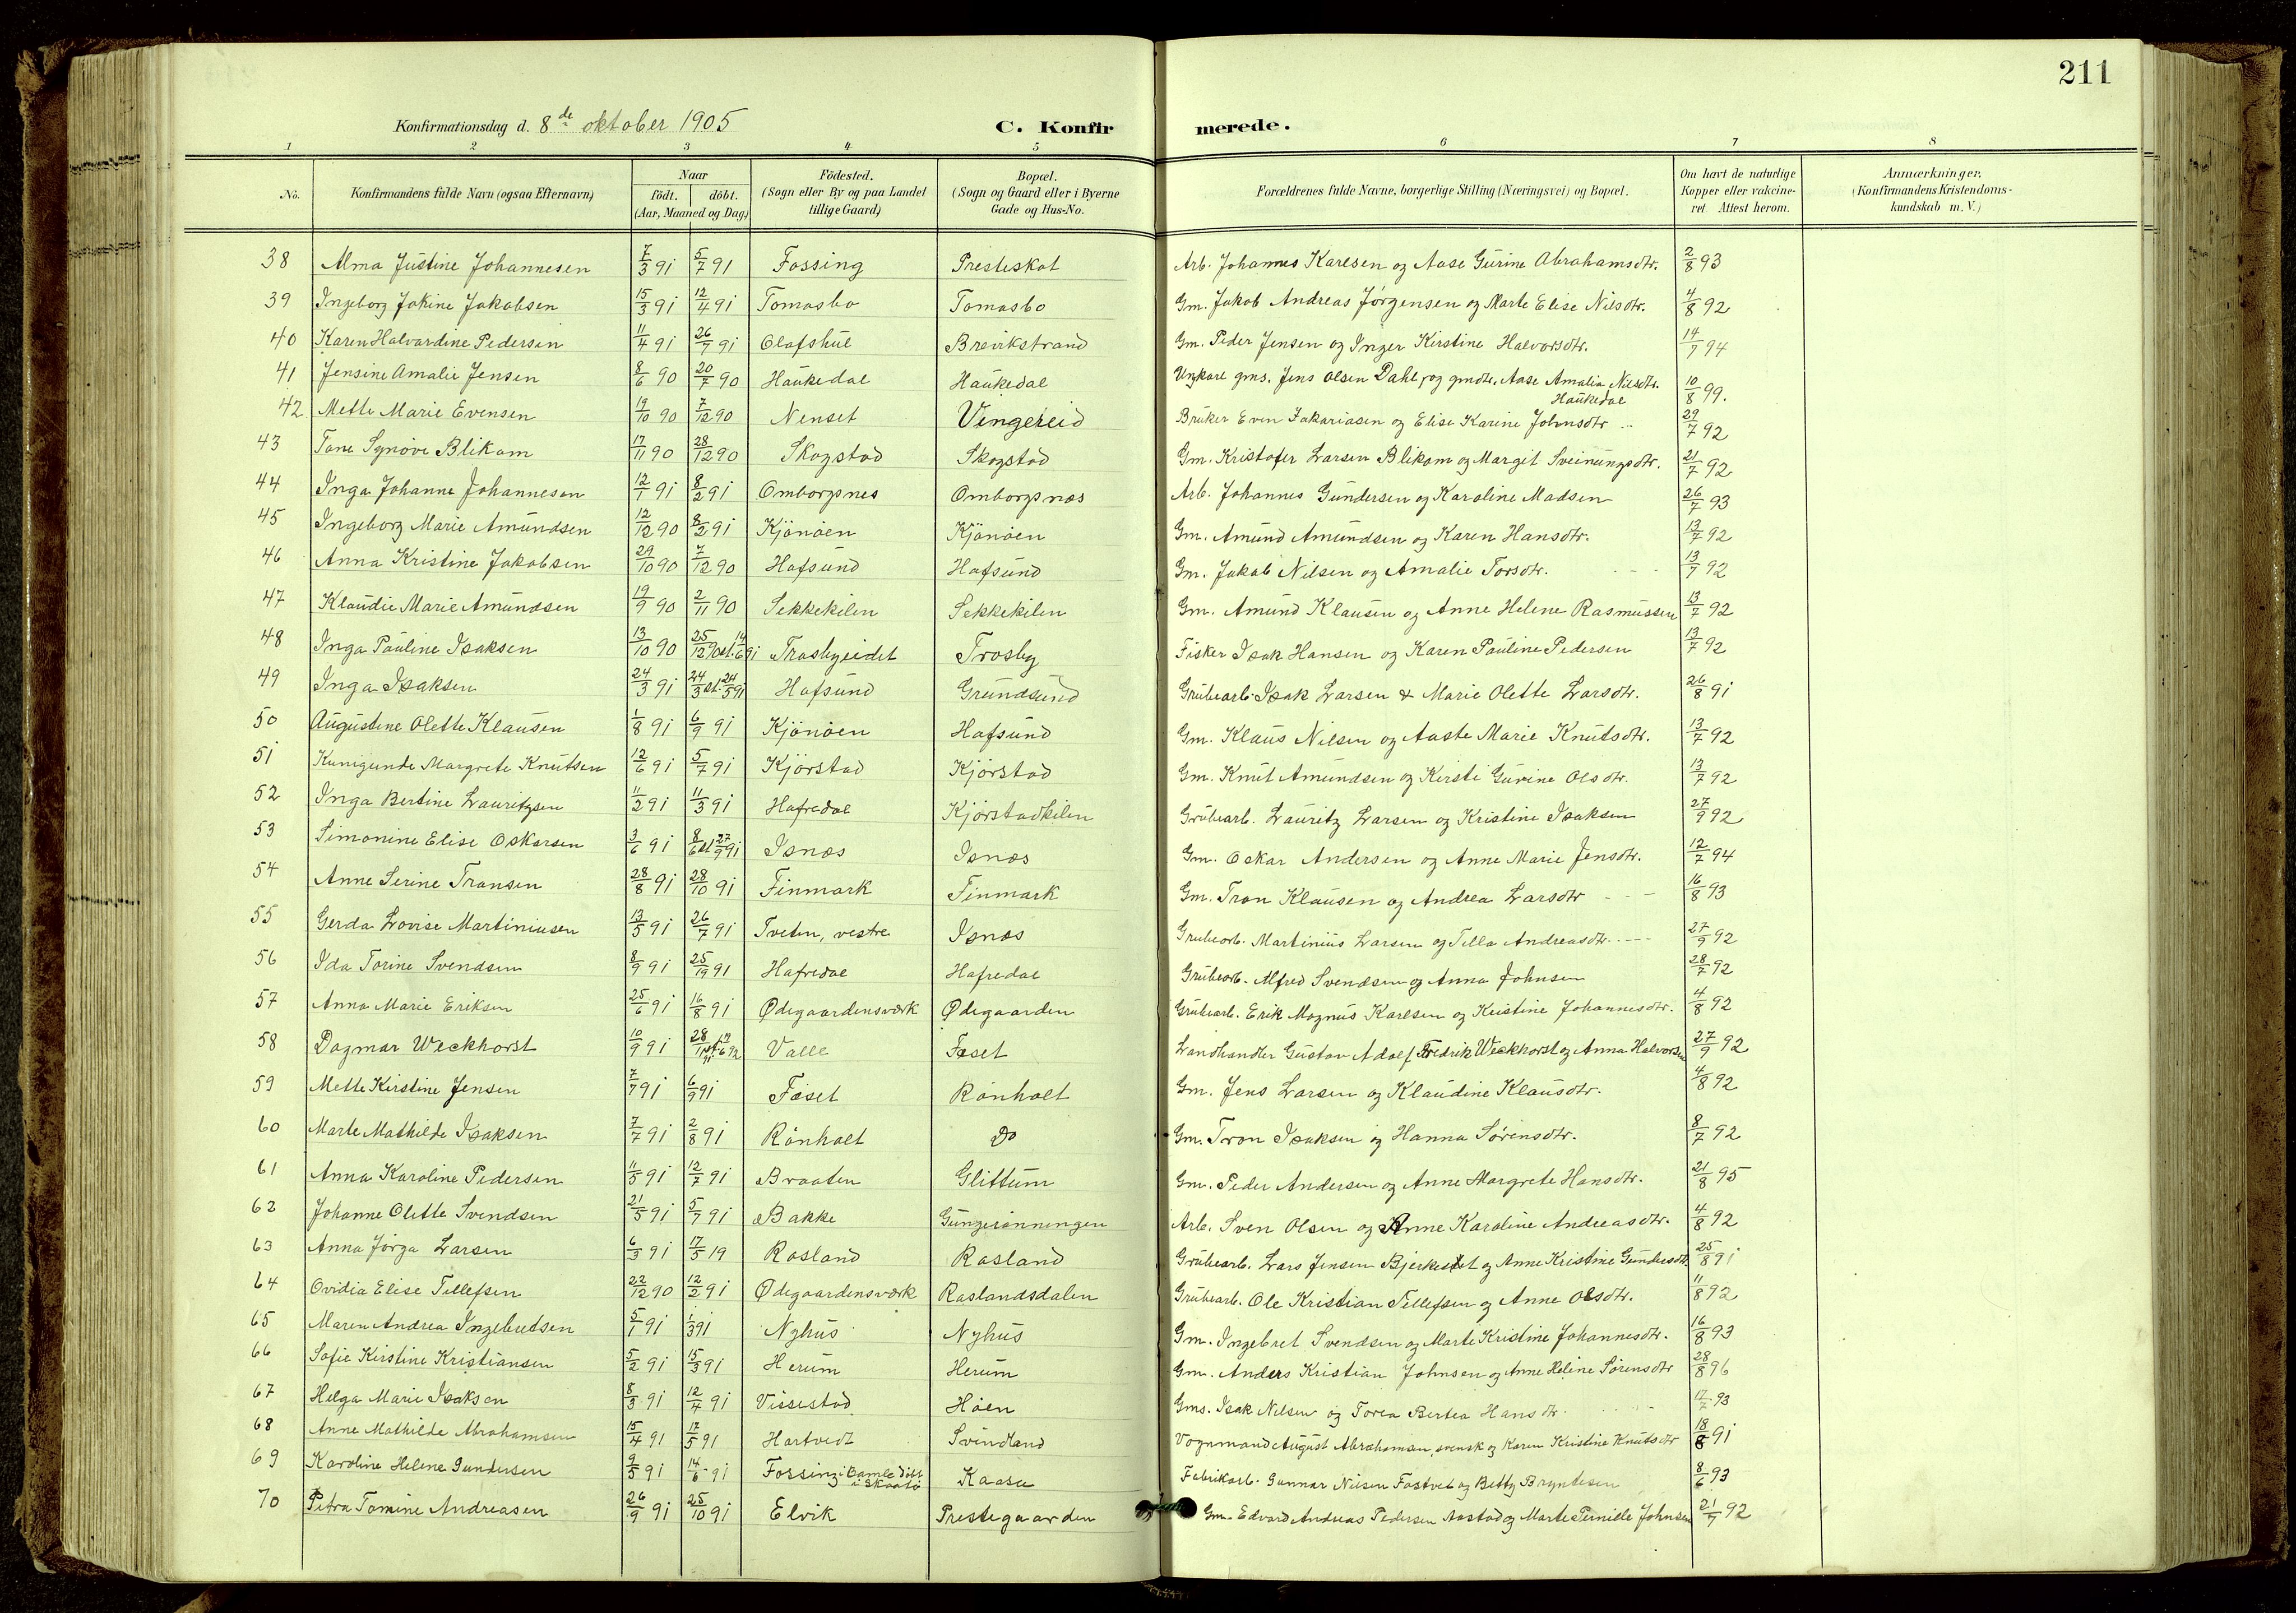 211
Konfirmationsdag d. 8de oktober 1905 C. Konfirmerede.
1 2 3 4 5 6 7 8
No. Konfirmandens fulde Navn (ogsaa Efternavn) Naar født. døbt. (Aar, Maaned og Dag) Fødested. (Sogn eller By og paa Landet tillige Gaard) Bopæl. (Sogn og Gaard eller i Byerne Gade og Hus-No. Forældrenes fulde Navne, borgerlige Stilling (Næringsvei) og Bopæl. Om havt de naturlige Kopper eller vakcineret Attest herom. Anmærkninger. (Konfirmandens Kristendomskundskab m. V.)
38 Alma Justine Johannesen 7/3 91 5/7 91 Fossing Presteskot Arb. Johannes Karlsen og Aase Gurine Abrahamsdtr. 2/8 93
39 Ingeborg Jokine Jakobsen 15/3 91 12/4 91 Tomasbo Tomasbo Gm. Jakob Andreas Jørgensen og Marte Elise Nilsdtr. 4/8 92
40 Karen Halvardine Pedersen 11/4 91 26/7 91 Olafshul Brevikstrand Gm. Peder Jensen og Inger Kirstine Halvorsdtr. 14/7 94
41 Jensine Amalie Jensen 8/6 90 20/7 90 Haukedal Haukedal Ungkarl gms. Jens Olsen Dahl, og gmdtr. Aase Amalia Nilsdtr. Haukedal 10/8 99.
42 Mette Marie Evensen 19/10 90 7/12 90 Nenset Vingereid Bruker Even Zakariasen og Elise Karine Johnsdtr 29/7 92
43 Tone Synøve Blikom 17/11 90 28/12 90 Skogstad Skogstad Gm. Kristofer Larsen Blikom og Margit Sveinungsdtr. 21/7 92
44 Inga Johanne Johannesen 12/1 91 8/2 91 Omborgsnes Omborgsnæs Arb. Johannes Gundersen og Karoline Madsen 26/7 93
45 Ingeborg Marie Amundsen 12/12 90 8/2 91 Kjönöen Kjönöen Gm. Amund Amundsen og Karen Hansdtr. 13/7 92
46 Anna Kristine Jakobsen 29/10 90 7/12 90 Hafsund Hafsund Gm. Jakob Nilsen og Amalie Torsdtr. 13/7 92
47 Klaudie Marie Amundsen 19/9 90 2/11 90 Sekkekilen Sekkekilen Gm. Amund Klausen og Anne Helene Rasmussen 13/7 92
48 Inga Pauline Isaksen 13/10 90 25/12 90 st. 14/6 91 Trosbyeidet Trosby Fisker Isak Hansen og Karen Pauline Pedersen 13/7 92
49 Inga Isaksen 24/3 91 24/3 st. 24/5 91 Hafsund Grundsund Grubearb. Isak Larsen & Marie Olette Larsdtr. 26/8 91
50 Augustine Olette Klausen 1/8 91 6/9 91 Kjönöen Hafsund Gm. Klaus Nilsen og Aaste Marie Knutsdtr. 13/7 92
51 Kunigunde Margrete Knutsen 12/6 91 5/7 91 Kjörstad Kjörstad Gm. Knut Amundsen og Kirsti Gurine Olsdtr. 13/7 92
52 Inga Bertine Lauritzsen 11/2 91 11/3 91 Hafredal Kjörstadkilen Grubearb. Lauritz Larsen og Kristine Isaksen 27/9 92
53 Simonine Elise Oskarsen 3/6 91 8/6 st 27/9 91 Isnæs Isnæs Gm. Oskar Andersen og Anne Marie Jensdtr. 12/7 94
54 Anne Serine Tronsen 28/8 91 28/10 91 Finmark Finmark Gm. Tron Klausen og Andrea Larsdtr 16/8 93
55 Gerda Lovise Martiniusen 13/5 91 26/7 91 Tveten, vestre Isnæs Grubearb. Martinius Larsen og Tilla Andreasdtr. 27/9 92
56 Ida Torine Svendsen 8/9 91 25/19 91 Hafredal Hafredal Grubearb. Alfred Svendsen og Anna Johnsen 28/7 92
57 Anna Marie Eriksen 25/6 91 16/8 91 Ødegaardensværk Ødegaarden Grubearb. Erik Magnus Karlsen og Kristine Johannesdtr. 4/8 92
58 Dagmar Weckhorst 10/9 91 Valle Fæset Landhandler Gustav Adolf Fredrik Weckhorst og Anna Halvorsen 27/9 92
59 Mette Kirstine Jensen 7/7 91 6/9 91 Fæset Rönholt Gm. Jens Larsen og Klaudine Klausdtr. 4/8 92
60 Marte Mathilde Isaksen 7/7 91 2/8 91 Rönholt Do Gm. Tron Isaksen og Hanna Sörensdtr. 8/7 92
61 Anna Karoline Pedersen 11/5 91 12/7 91 Braaten Glittum Gm. Peder Andersen og Anne Margrete Hansdtr. 21/8 95
62 Johanne Olette Svendsen 21/5 91 5/7 91 Bakke Gungerönningen Arb. Sven Olsen og Anne Karoline Andreasdtr. 4/8 92
63 Anna Jörga Larsen 6/3 91 17/5 19 Rosland Rosland Grubearb. Lars Jensen Bjerkeset og Anne Kristine Gundersdtr. 25/8 91
64 Ovidia Elise Tellefsen 22/12 90 12/2 91 Ødegaardensværk Roslandsdalen Grubearb. Ole Kristian Tellefsen og Anne Olsdtr. 11/8 92
65 Maren Andrea Ingebretsen 5/1 91 1/3 91 Nyhus Nyhus Gm. Ingebret Svendsen og Marte Kristine Johannesdtr. 16/8 93
66 Sofie Kirstine Kristiansen 5/2 91 15/3 91 Herum Herum Gm. Anders Kristian Johnsen og Anne Heline Sörensdtr 28/8 96
67 Helga Marie Isaksen 8/3 91 12/4 91 Vissestad Høen Gms. Isak Nilsen og Torea Bertea Hansdtr. 17/7 93
68 Anne Mathilde Abrahamsen 15/4 91 17/5 91 Hartvedt Svindland Vognmand August Abrahamsen, svensk og Karen Kristine Knutsdtr 18/8 91
69 Karoline Helene Gundersen 9/5 91 14/6 91 Fossing i Bamle döbt i Skaatö Kaasa Fabrikarb. Gunnar Nilsen Fostvet og Betty Bryntesen 8/6 93
70 Petra Tomine Andreasen 26/9 91 25/10 91 Elvik Prestegaarden Gm. Edvard Andreas Pedersen Aastad og Marte Pernille Johnsen 21/7 92